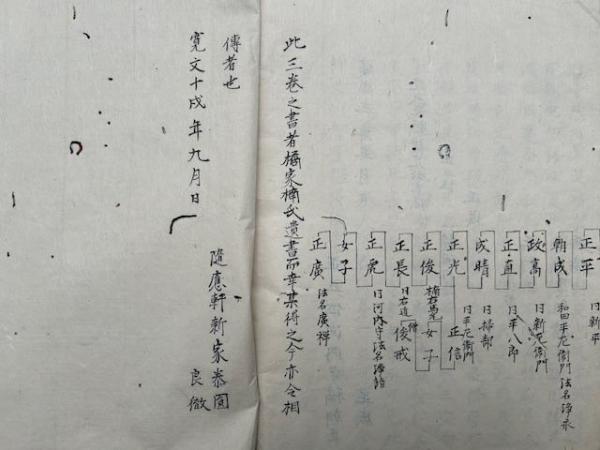 正平
曰新平
朝成
和田平左衛門法名浄永
政高
曰新左衛門
正直
曰平八郎
成晴
曰掃部
正光
曰平左衛門
正信
正俊
楠右馬
女子
正長
曰右近
後戒
正虎
曰河内守法名
女子
正廣
法名廣禅
此三巻之書者楠家楠氏遺書而幸某得之今亦令相
傳者也
寛文十戌年九月日
隨應軒新家
良徹